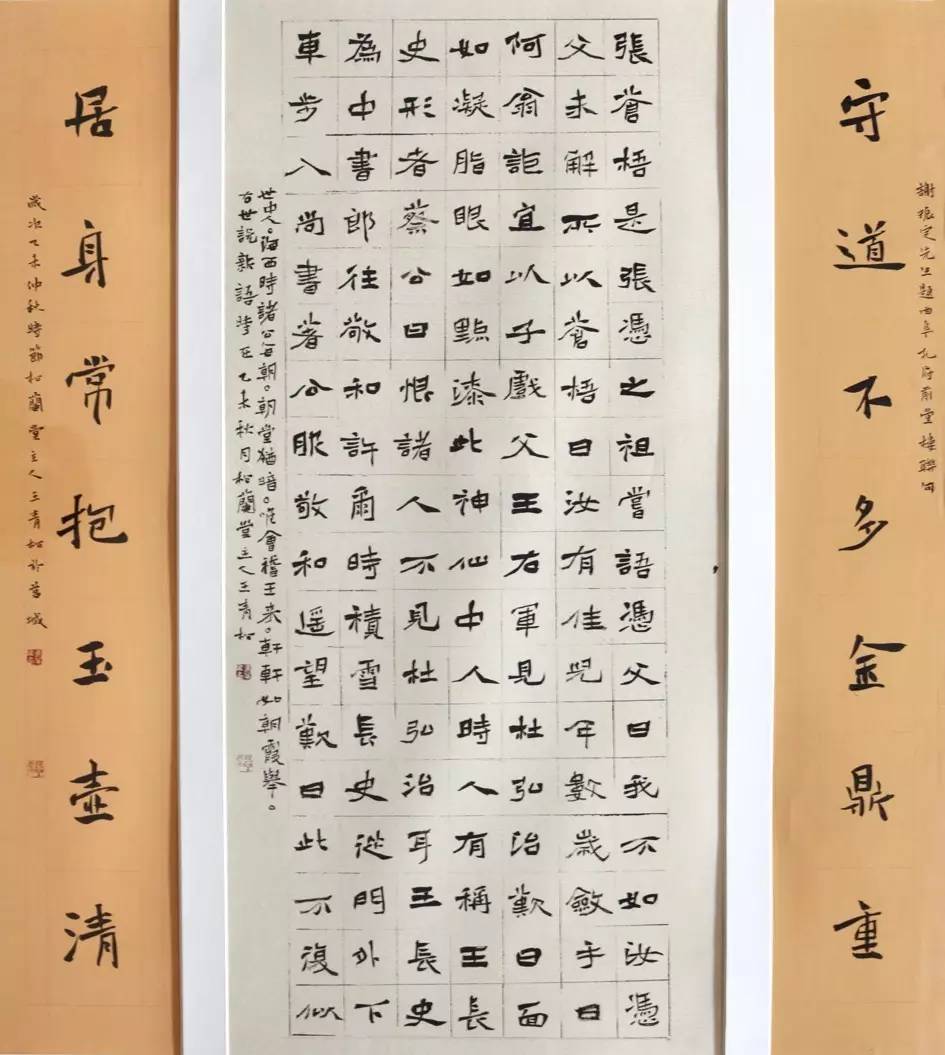 謝振定先生題曲阜孔府前堂楹聯句
守道不多金鼎重
張蒼梧是張憑之祖嘗語憑父曰我不如汝憑
父未解所以蒼梧曰汝有佳兒年數歲斂手曰
何翁詎宜以子戲父王右軍見杜弘治歎曰面
如凝脂眼如點漆此神仙中人時人有稱王長
史形者蔡公曰恨諸人不見杜弘治耳王長史
為中書郎往敬和許爾時積雪長史從門外下
車步入尚書著公服敬和遥望歎曰此不復似
世中人。海西時諸公每朝。朝堂猶暗。唯會稽王來。軒軒如朝霞舉。
右世説新語 乙未秋月松蘭堂主人王青松
居身常抱玉壺清
歲次乙未仲秋時節松蘭堂主人王青松於蓉城